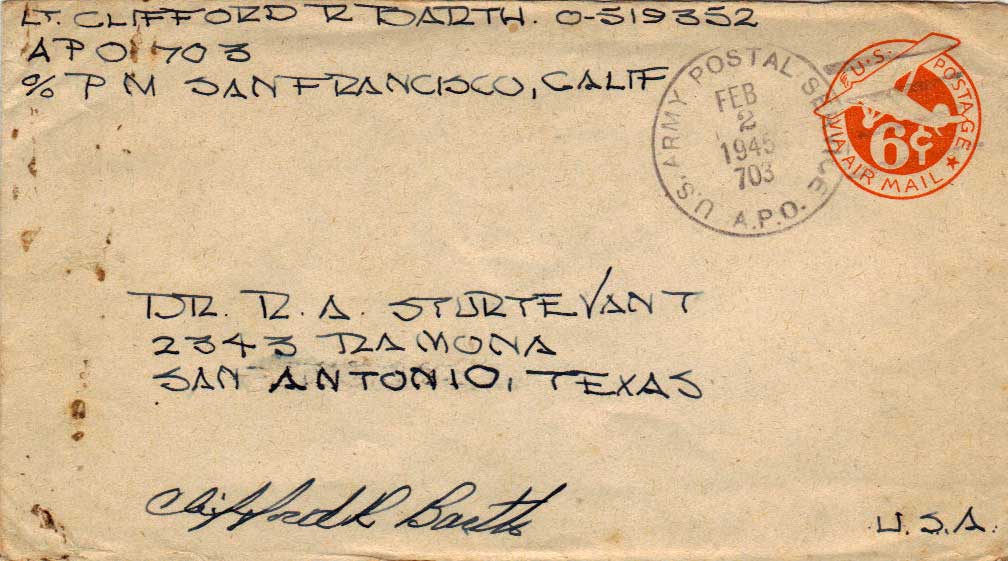 LT. CLIFFORD R BARTH. O-519352
APO 703
℅ P M SAN FRANCISCO, CALIF
U.S. ARMY POSTAL SERVICE
FEB
2
1945
703
A.P.O.
U.S. POSTAGE
6¢
VIA AIR MAIL
DR. R. A. STURTEVANT
2343 RAMONA
SAN ANTONIO, TEXAS
Clifford R Barth
U.S.A.